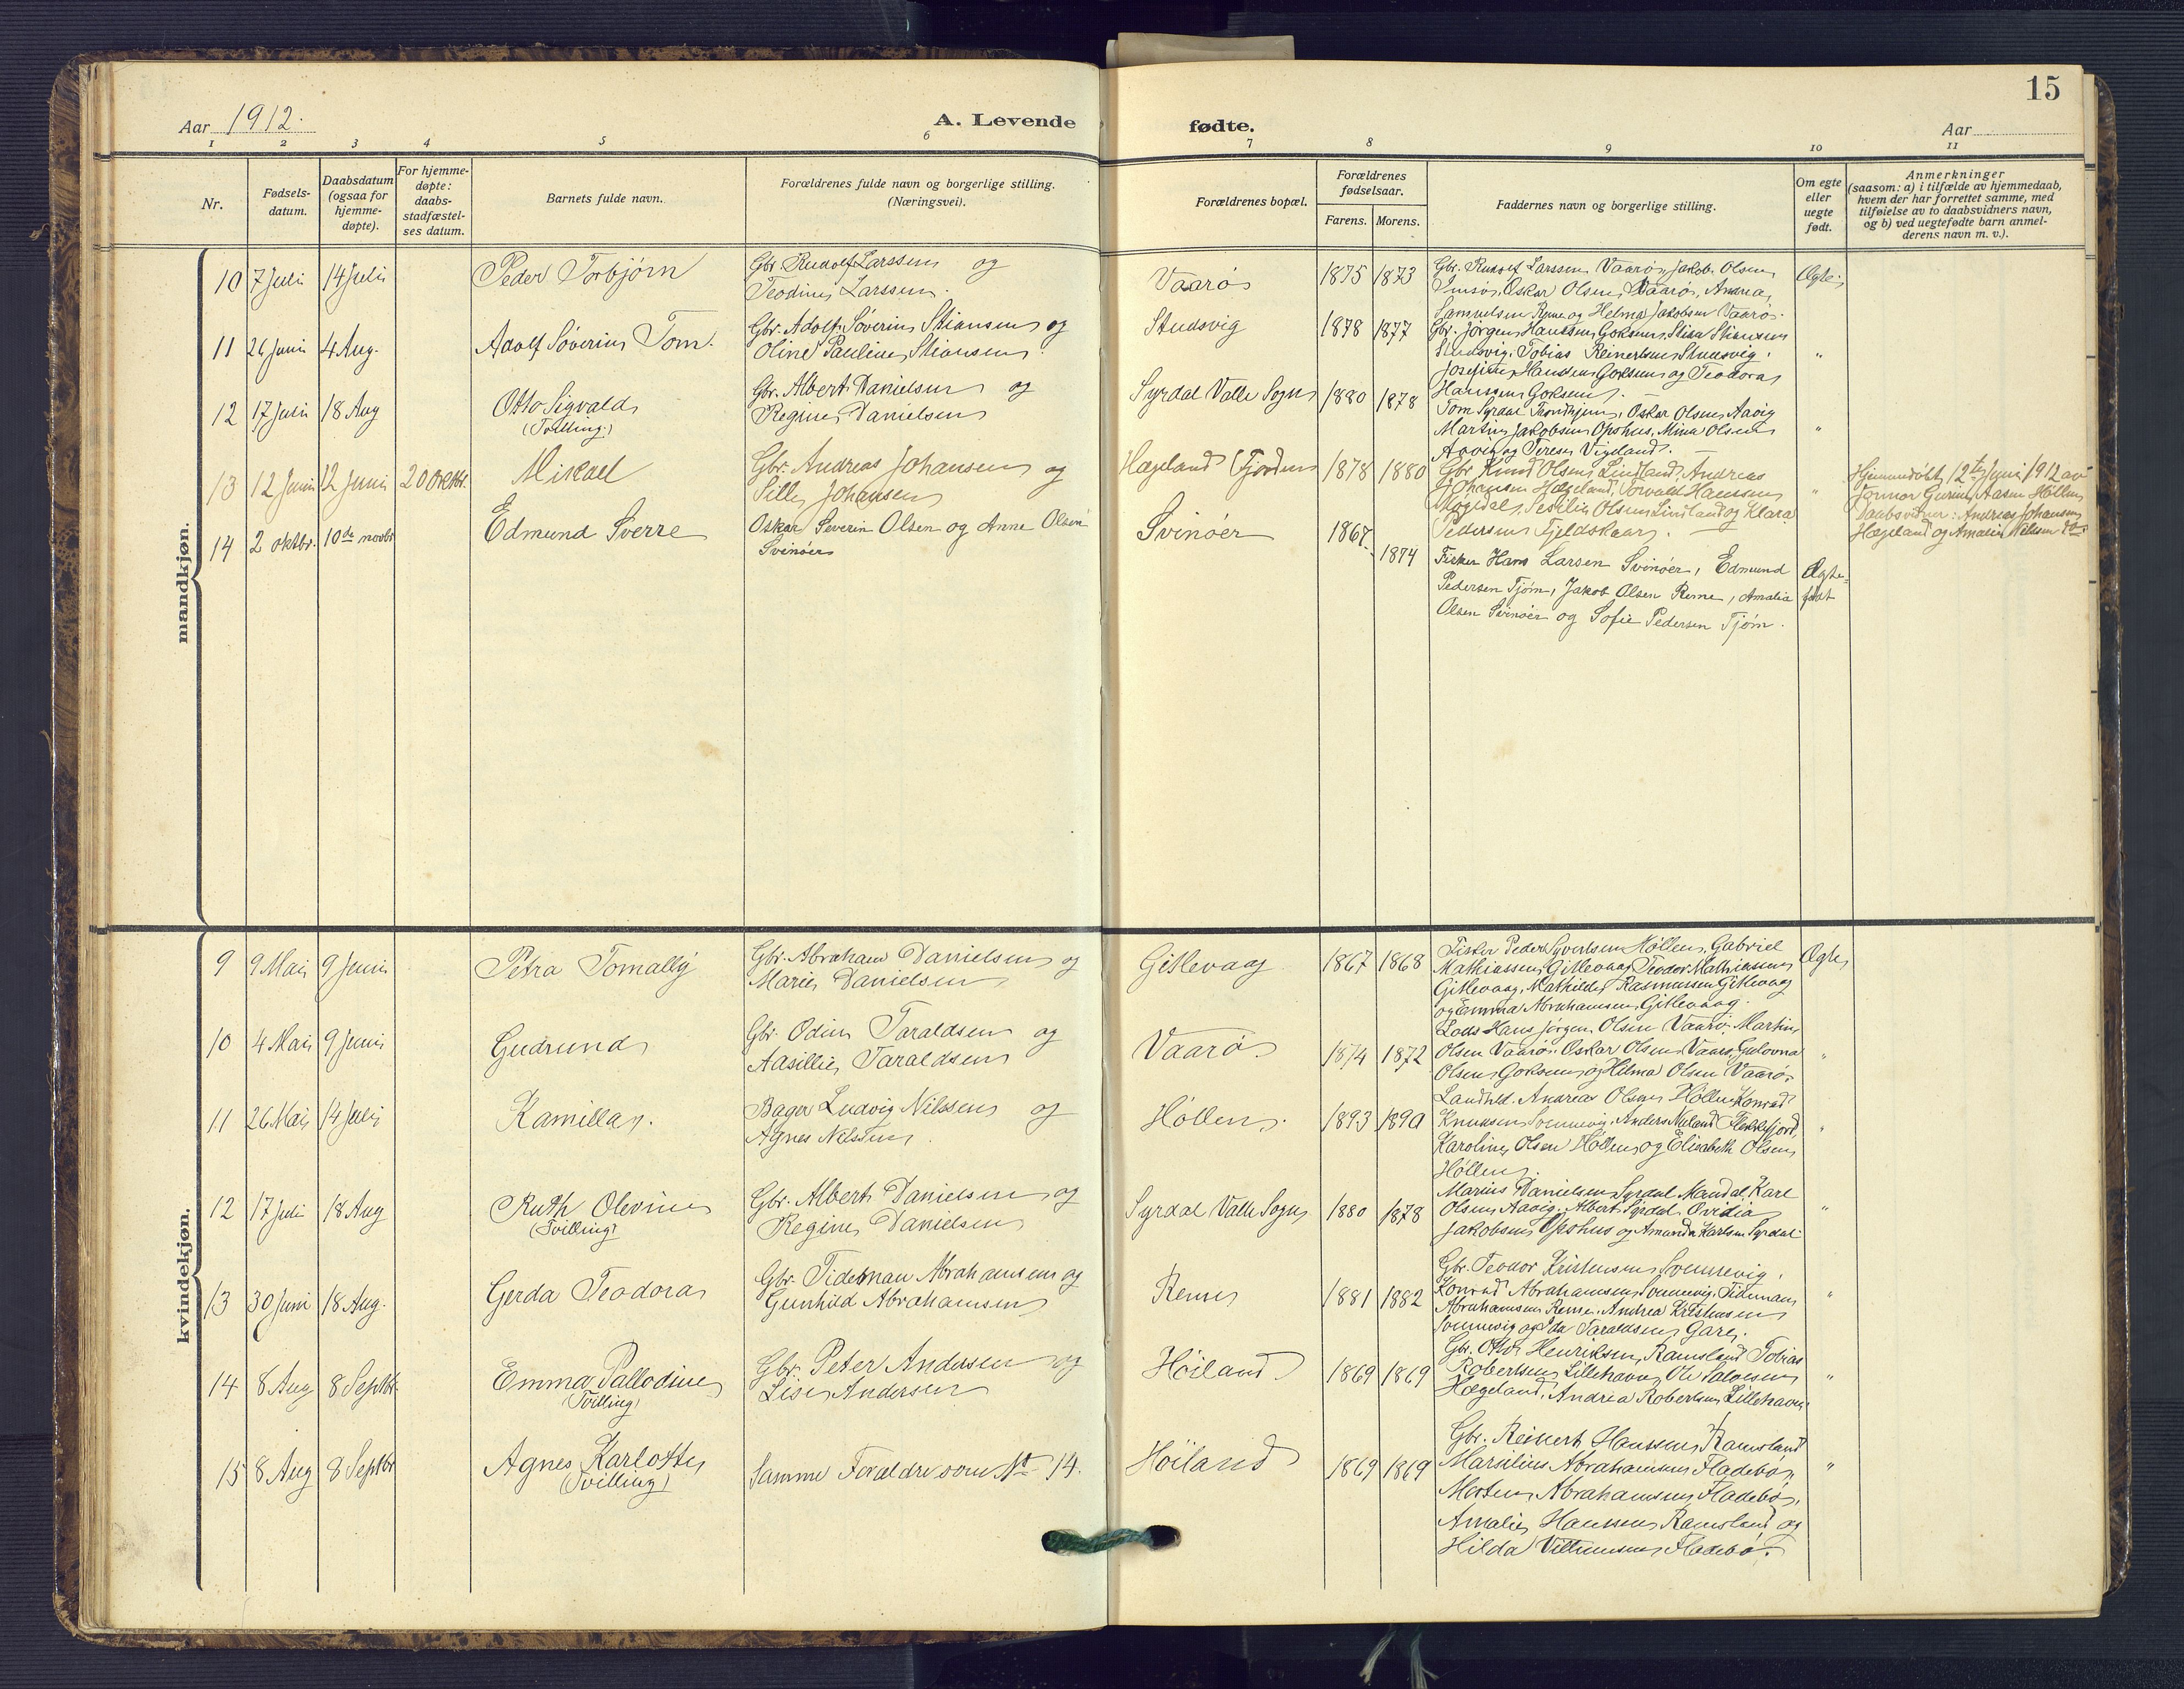 15
Aar 1912.
A. Levende
fødte.
Aar
1 2 3 4 5 6 7 8 9 10 11
Nr.
Fødsels-
datum.
Daabsdatum
(ogsaa for
hjemme-
døpte).
For hjemme-
døpte:
daabs-
stadfæstel-
ses datum.
Barnets fulde navn.
Forældrenes fulde navn og borgerlige stilling.
(Næringsvei).
Forældrenes bopæl.
Forældrenes
fødselsaar.
Farens. Morens.
Faddernes navn og borgerlige stilling.
Om egte
eller
uegte
født.
Anmerkninger
(saasom: a) i tilfælde av hjemmedaab,
hvem der har forrettet samme, med
tilføielse av to daabsvidners navn,
og b) ved uegtefødte barn anmel-
derens navn m. v.).
mandkjøn.
10 7 Juli 14 Juli
Peder Torbjørn
Gbr. Rudolf Larssen og
Teodine Larssen.
Vaarø
1875 1873
Gbr. Rudolf Larssen Vaarø, Jakob Olsen
Imsø, Oskar Olsen Vaarø, Andrea
Samuelsen Reme og Helma Jakobsen Vaarø.
Ægte
11 26 Juni 4 Aug.
Adolf Søverin Tom.
Gbr. Adolf Søverin Stiansen og
Oline Pauline Stiansen.
Studsvig
1878 1877
Gbr. Jørgen Hanssen Goksem, Stian Stiansen
Studsvig, Tobias Reinertsen Studsvig,
Josefine Hanssen Goksem og Teodora
Hanssen Goksem.
"
12 17 Juli 18 Aug
Otto Sigvald
(Tvilling)
Gbr. Albert Danielsen og
Regine Danielsen
Syrdal Valle Sogn
1880 1878
Tom Syrdal Trondhjem, Oskar Olsen Aavig
Martin Jakobsen Opshus, Mina Olsen
Aavig og Terese Vigeland.
"
13 12 Juni 12 Juni 20 Oktbr.
Mikael
Gbr. Andreas Johansen og
Silly Johansen
Hægeland (Fjorden
1878 1880
Gbr Knud Olsen Lindland, Andreas
Johansen Hægeland, Torvald Hanssen
Møgedal, Sesilie Olsen Lindland og Klara
Pedersen Fjeldskaar.
"
Hjemmedøbt 12te Juni 1912 av
Jormor Gurine Aasen Høllen
Daabsvidner: Andreas Johansen
Hægeland og Amalie Nilsen do
14 2 oktbr. 10de novbr
Edmund Sverre
Oskar Severin Olsen og Anne Olsen
Svinøer
Svinøer
1867.
1874
Fisker Hans Larsen Svinøer, Edmund
Pedersen Tjøm, Jakob Olsen Reme, Amalia
Olsen Svinøer og Sofie Pedersen Tjøm.
Ægte-
født
kvindekjøn.
9 9 Mai 9 Juni
Petra Tomally
Gbr. Abraham Danielsen og
Marie Danielsen
Gitlevaag
1867 1868
Fisker Peder Syvertsen Høllen, Gabriel
Mathiassen Gitlevaag, Teodor Mathiassen
Gitlevaag, Mathilde Rasmussen Gitlevaag
og Emma Abrahamsen Gitlevaag.
Ægte
10 4 Mai 9 Juni
Gudrund
Gbr. Odin Taraldsen og
Aasillie Taraldsen
Vaarø
1874 1872
Lods Hans Jørgen Olsen Vaarø, Martin
Olsen Vaarø, Oskar Olsen Vaarø, Gulovna
Olsen Goksem og Helma Olsen Vaarø
"
11 26 Mai 14 Juli
Kamilla.
Bager Ludvig Nilssen og
Agnes Nilssen.
Høllen.
1893 1890
Landhld. Andreas Olsen Høllen, Konrad
Knudsen Svennevig, Anders Nuland Flekkefjord,
Karoline Olsen Høllen og Elisabeth Olsen
Høllen.
"
12 17 Juli 18 Aug
Ruth Olevine
(Tvilling)
Gbr. Albert Danielsen og
Regine Danielsen
Syrdal Valle Sogn
1880 1878
Marius Danielsen Syrdal Mandal, Karl
Olsen Aavig, Albert Syrdal, Ovidia
Jakobsen Opshus og Amanda Karlsen Syrdal
"
13 30 Juni 18 Aug.
Gerda Teodora
Gbr. Tideman Abrahamsen og
Gunhild Abrahamsen
Reme
1881 1882
Gbr. Teodor Kristensen Svennevig,
Konrad Abrahamsen Svennevig, Tideman
Abrahamsen Reme, Andrea Kristensen
Svennevig og Ida Taraldsen Gare.
"
14 8 Aug 8 Septbr
Emma Pallodine
(Tvilling)
Gbr. Peter Andersen og
Lise Andersen
Høiland
1869 1869
Gbr. Otto Henriksen, Ramsland Tobias
Robertsen Lillehavn, Ole Salvesen
Hægeland, Andrea Robertsen Lillehavn
"
15 8 Aug 8 Septbr
Agnes Karlotte
(Tvilling)
Samme Forældre som No 14.
Høiland
1869 1869
Gbr. Reinert Hanssen Ramsland
Marsilius Abrahamsen Fladebø,
Morten Abrahamsen Fladebø,
Amalie Hanssen Ramsland og
Hilda Villumsen Fladebø.
"